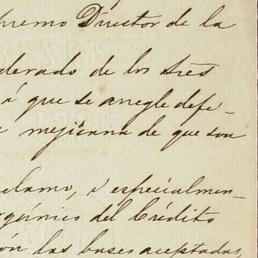 premo Director de la
derado de los tres
á que se arregle defe-
mejicana de que son
clamo, é especialmen-
rgánico del Crédito
ón las bases aceptadas,